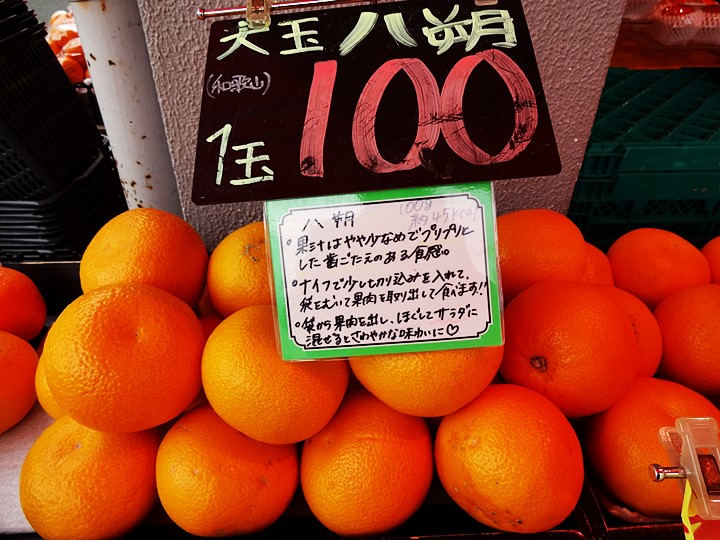 大玉 八朔
(和歌山)
1玉 100
八朔 100g 約45kcal
・果汁はやや少なめでプリプリと
した歯ごたえのある食感。
・ナイフで少し切り込みを入れて、
袋をむいて果肉を取り出して食べます!!
・袋から果肉を出し、ほぐしてサラダに
混ぜるとさわやかな味わいに♡